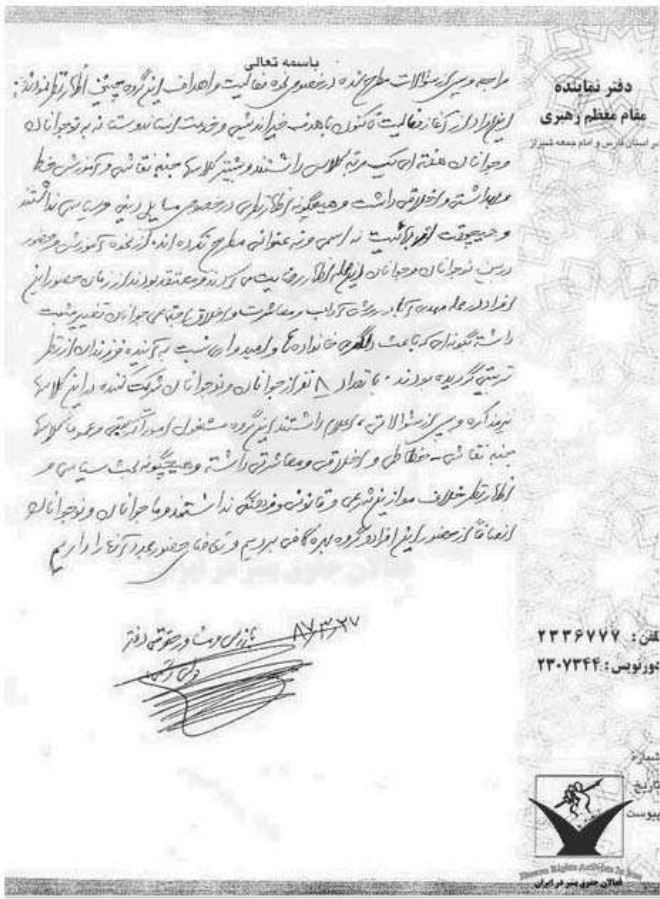 باسمه تعالی
دفتر نماینده
مقام معظم رهبری
در استان فارس و امام جمعه شیراز
مراجعه و پس از سئوالات مطرح شده در خصوص نحوه فعالیت و اهداف این گروه چنین اظهار نظر نمودند:
این افراد از آغاز فعالیت تا کنون با هدف خیراندیشی و خدمت انساندوستانه به نوجوانان
و جوانان هفته ای یک مرتبه کلاس داشتند و بیشتر کلاسها جنبه نقاشی و آموزش خط
و بهداشتی و اخلاقی داشت و هیچگونه اظهار نظری در خصوص مسایل دینی و سیاسی نداشتند
و هیچوقت از بهائیت نه اسمی و نه عنوانی مطرح نکرده اند، از نحوه آموزش و حضور
در بین نوجوانان و جوانان این محله اظهار رضایت می کردند و معتقد بودند از زمان حضور این
افراد در محله مهدی آباد در روش آداب و معاشرت و اخلاق اجتماعی جوانان تغییر مثبت
داشته بگونه ای که باعث دلگرمی خانواده ها و امیدواری نسبت به آینده فرزندان از نظر
تربیتی گردیده بودند. با تعداد ۸ نفر از جوانان و نوجوانان شرکت کننده در این کلاسها
نیز مذاکره و پس از سئوالاتی، اعلام داشتند این گروه مشغول امور آموزشی و عموما کلاسها
جنبه نقاشی - خطاطی و اخلاقی و معاشرتی داشته و هیچگونه بحث سیاسی و
اظهار نظر خلاف موازین شرعی و قانونی و فرهنگی نداشتند و ما جوانان و نوجوانان
انصافاً از حضور این افراد و گروه بهره کافی بردیم و تقاضای حضور مجدد آنها را داریم
۸۷/۳/۲۷ بازرس و مشاور حقوقی دفتر
تلفن: ۲۳۳۶۷۷۷
دورنویس: ۲۳۰۷۳۴۴
شماره
تاریخ
پیوست
Human Rights Activists In Iran
فعالان حقوق بشر در ایران